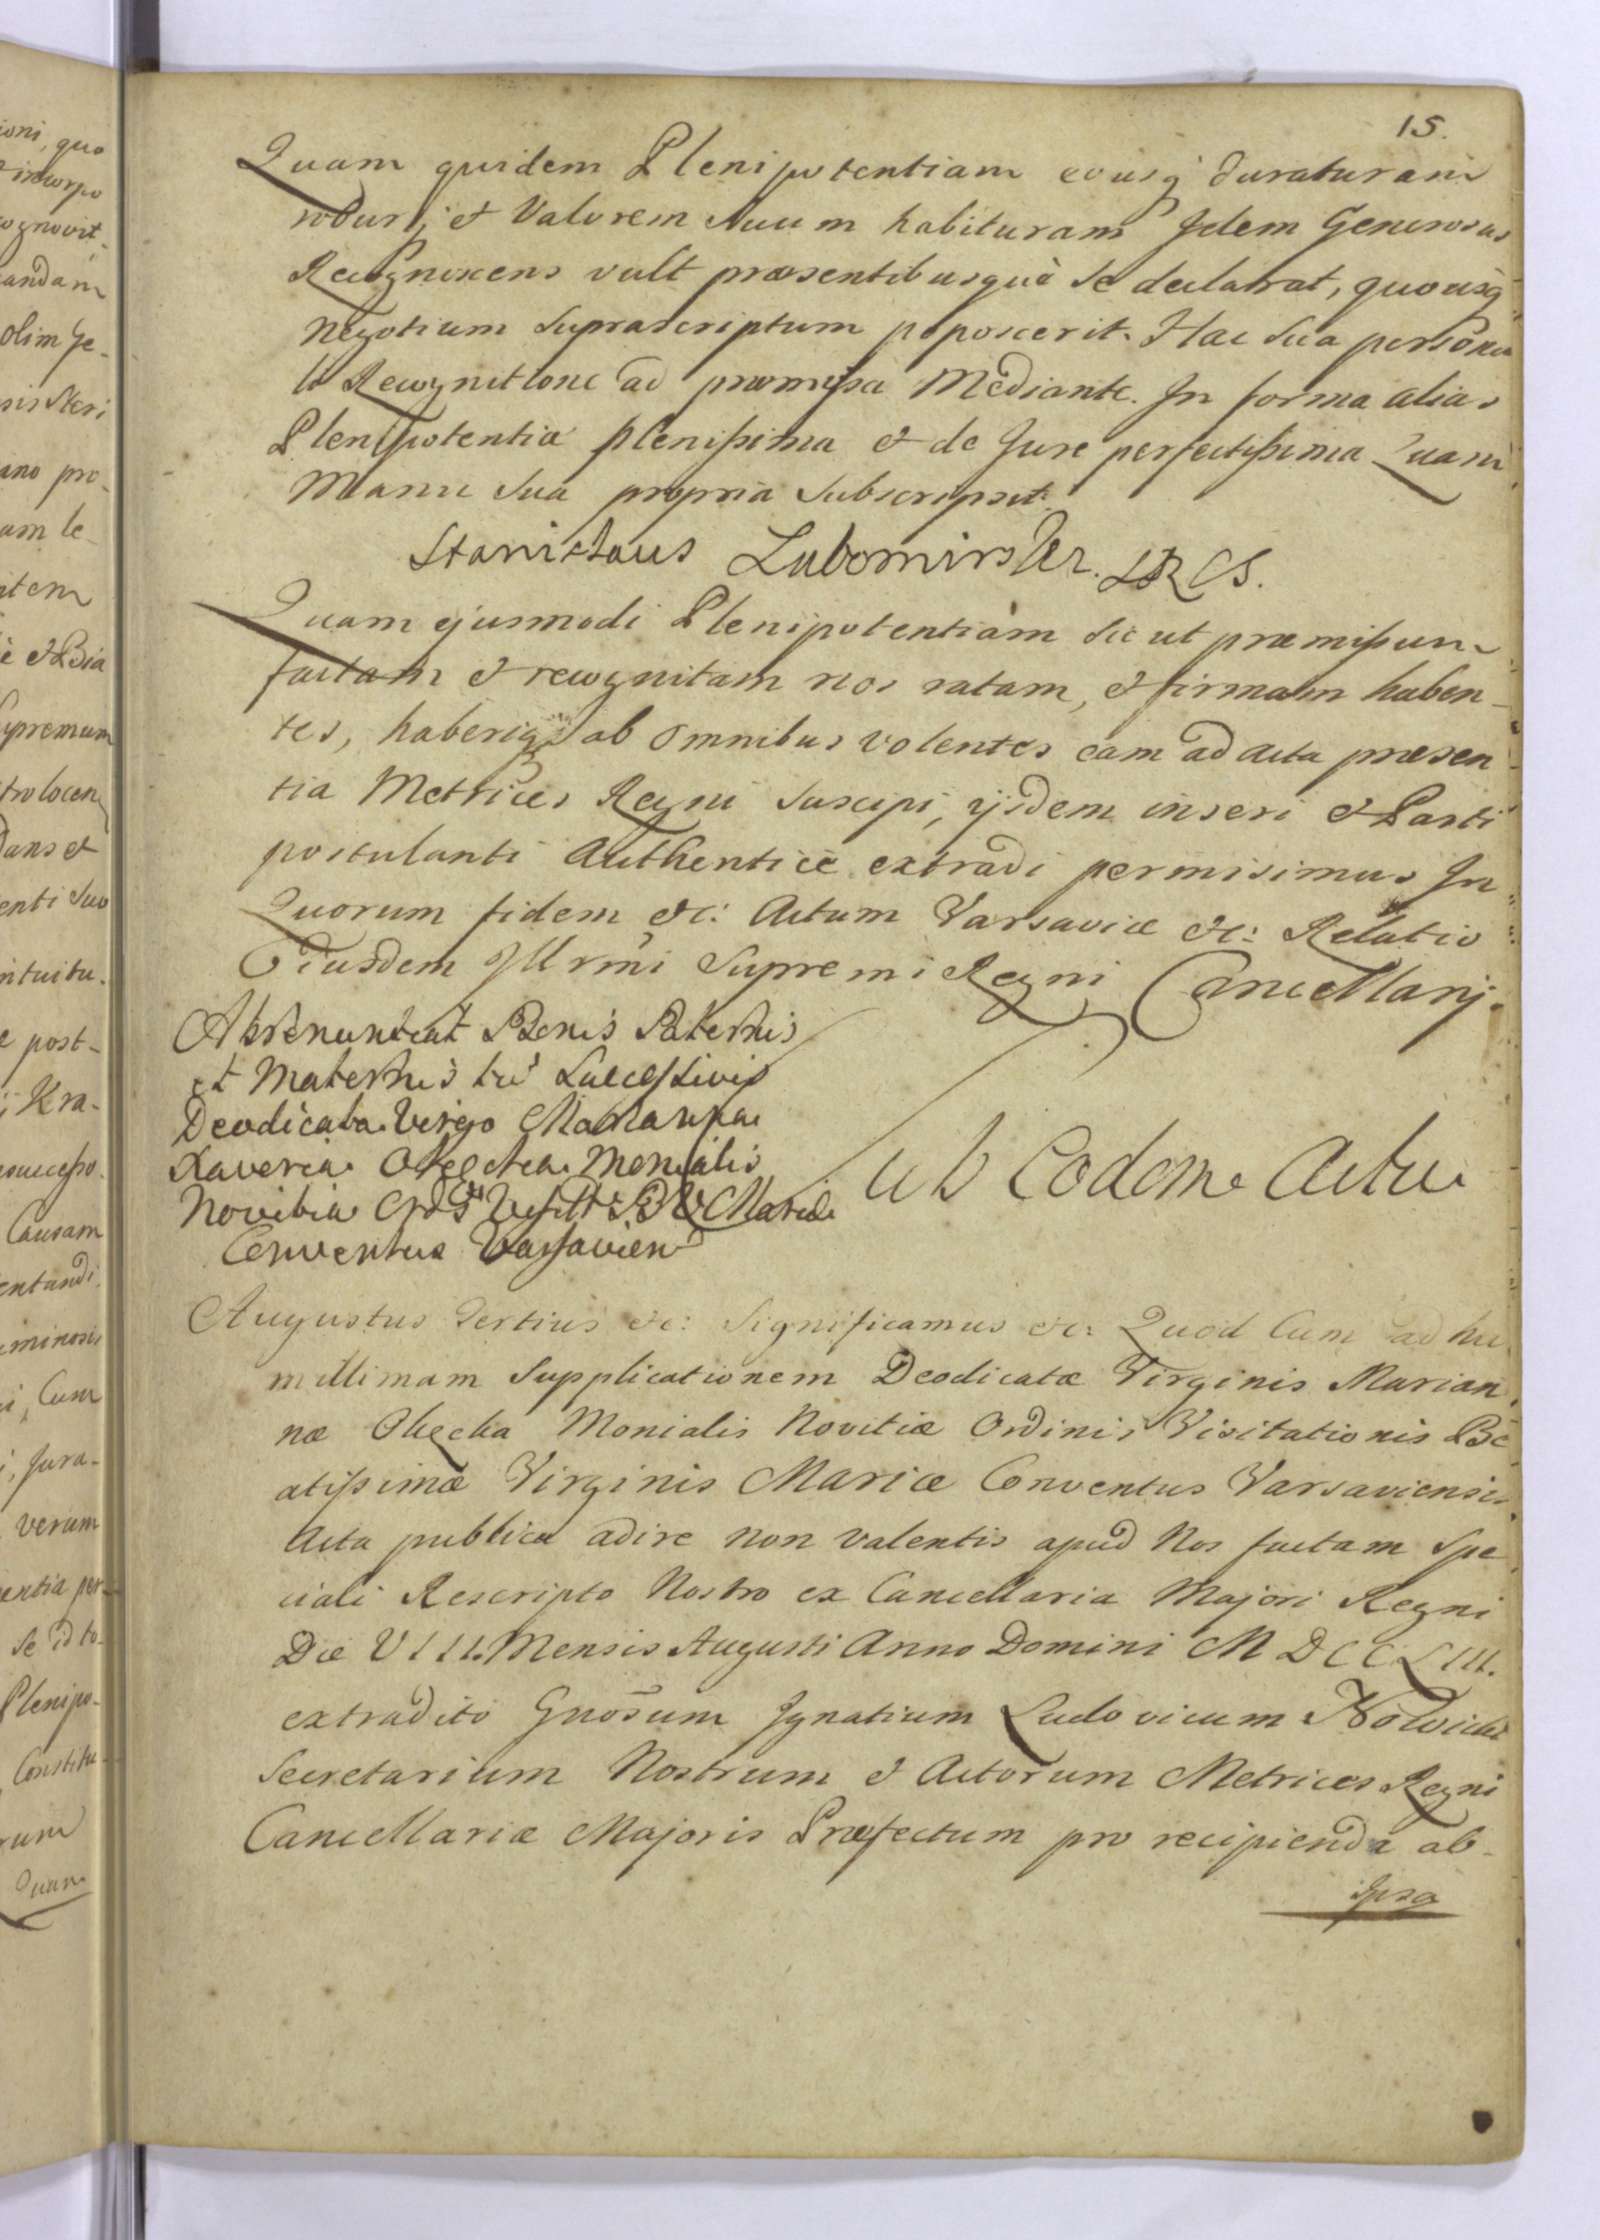 15.
Quam quidem Plenipotentiam eousq duraturam
roburq et Valorem suum habituram Idem Generosus
Recognoscens vult praesentibusquè se declarat, quousq
negotium suprascriptum poposcerit. Hac sua persona
li Recognitione ad praemissa Mediante. In forma alias
Plenipotentiae plenissima et de Jure perfectissima Quam
Manu sua propria subscripsit.
Stanislaus Lubomirski
Quam ejusmodi Plenipotentiam sic ut praemissum
factam et recognitam nos ratam, et firmam haben-
tes, haberiq ab omnibus volentes eam ad acta praesen
tia Metrices Regni suscipi, ijsdem inseri et Parti
postulanti Authenticè extradi permisimus In
Quorum fidem etc: Actum Varsaviae etc: Relatio
Eiusdem Illrmi Supremi Regni Cancellarij.
Abrenuntiat Bonis Paternis
et Maternis Successivis
Deodicata Virgo Marianna
Xaveria Monialis
Novitia Ordis Visitts B V Mariae
Conventus Varsavien
Sub Eodem Actu
Augustus Tertius etc: Significamus etc: Quod Cum ad hu
millimam Supplicationem Deodicatae Virginis Marian
nae Monialis Novitiae Ordinis Visitationis Be
atissimae Virginis Mariae Conventus Varsaviensis
Acta publica adire non valentis apud Nos factam Spe
ciali Rescripto Nostro ex Cancellaria Majori Regni
Die VIII. Mensis Augusti Anno Domini MDCCLIII.
extradito Gnosum Ignatium Ludovicum
Secretarium Nostrum et Actorum Metrices Regni
Cancellariae Majoris Praefectum pro recipienda ab-
Ipsa